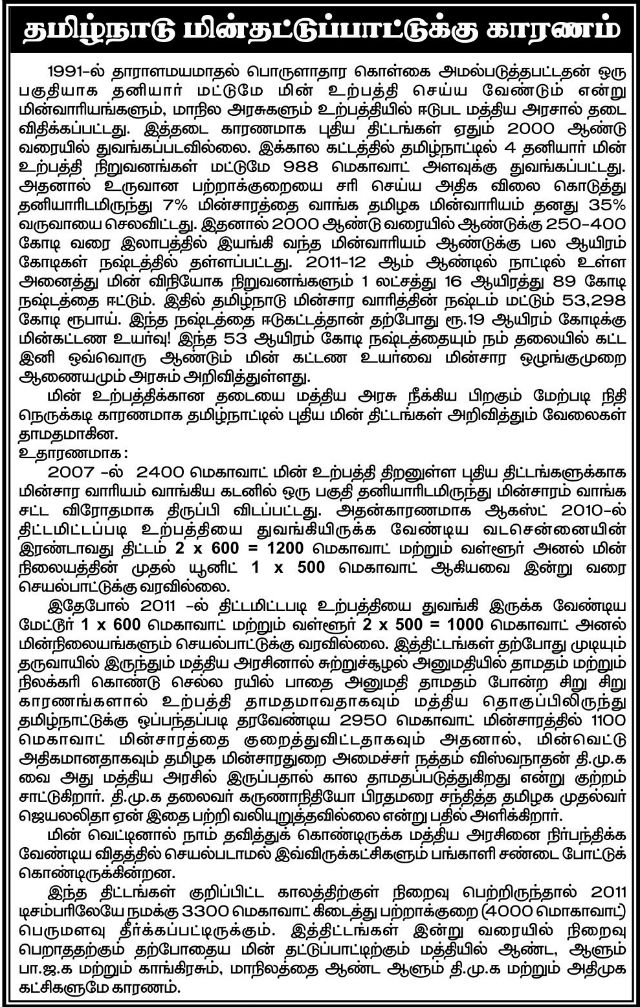 தமிழ்நாடு மின்தட்டுப்பாட்டுக்கு காரணம்
1991-ல் தாராளமயமாதல் பொருளாதார கொள்கை அமல்படுத்தபட்டதன் ஒரு
பகுதியாக தனியார் மட்டுமே மின் உற்பத்தி செய்ய வேண்டும் என்று
மின்வாரியங்களும், மாநில அரசுகளும் உற்பத்தியில் ஈடுபட மத்திய அரசால் தடை
விதிக்கப்பட்டது. இத்தடை காரணமாக புதிய திட்டங்கள் ஏதும் 2000 ஆண்டு
வரையில் துவங்கப்படவில்லை. இக்கால கட்டத்தில் தமிழ்நாட்டில் 4 தனியார் மின்
உற்பத்தி நிறுவனங்கள் மட்டுமே 988 மெகாவாட் அளவுக்கு துவங்கப்பட்டது.
அதனால் உருவான பற்றாக்குறையை சரி செய்ய அதிக விலை கொடுத்து
தனியாரிடமிருந்து 7% மின்சாரத்தை வாங்க தமிழக மின்வாரியம் தனது 35%
வருவாயை செலவிட்டது. இதனால் 2000 ஆண்டு வரையில் ஆண்டுக்கு 250-400
கோடி வரை இலாபத்தில் இயங்கி வந்த மின்வாரியம் ஆண்டுக்கு பல ஆயிரம்
கோடிகள் நஷ்டத்தில் தள்ளப்பட்டது. 2011-12 ஆம் ஆண்டில் நாட்டில் உள்ள
அனைத்து மின் விநியோக நிறுவனங்களும் 1 லட்சத்து 16 ஆயிரத்து 89 கோடி
நஷ்டத்தை ஈட்டும். இதில் தமிழ்நாடு மின்சார வாரித்தின் நஷ்டம் மட்டும் 53,298
கோடி ரூபாய். இந்த நஷ்டத்தை ஈடுகட்டத்தான் தற்போது ரூ.19 ஆயிரம் கோடிக்கு
மின்கட்டண உயர்வு! இந்த 53 ஆயிரம் கோடி நஷ்டத்தையும் நம் தலையில் கட்ட
இனி ஒவ்வொரு ஆண்டும் மின் கட்டண உயர்வை மின்சார ஒழுங்குமுறை
ஆணையமும் அரசும் அறிவித்துள்ளது.
மின் உற்பத்திக்கான தடையை மத்திய அரசு நீக்கிய பிறகும் மேற்படி நிதி
நெருக்கடி காரணமாக தமிழ்நாட்டில் புதிய மின் திட்டங்கள் அறிவித்தும் வேலைகள்
தாமதமாகின.
உதாரணமாக :
2007 -ல் 2400 மெகாவாட் மின் உற்பத்தி திறனுள்ள புதிய திட்டங்களுக்காக
மின்சார வாரியம் வாங்கிய கடனில் ஒரு பகுதி தனியாரிடமிருந்து மின்சாரம் வாங்க
சட்ட விரோதமாக திருப்பி விடப்பட்டது. அதன்காரணமாக ஆகஸ்ட் 2010-ல்
திட்டமிட்டப்படி உற்பத்தியை துவங்கியிருக்க வேண்டிய வடசென்னையின்
இரண்டாவது திட்டம் 2 x 600 = 1200 மெகாவாட் மற்றும் வள்ளூர் அனல் மின்
நிலையத்தின் முதல் யூனிட் 1 x 500 மெகாவாட் ஆகியவை இன்று வரை
செயல்பாட்டுக்கு வரவில்லை.
இதேபோல் 2011 -ல் திட்டமிட்டபடி உற்பத்தியை துவங்கி இருக்க வேண்டிய
மேட்டூர் 1 x 600 மெகாவாட் மற்றும் வள்ளூர் 2 x 500 = 1000 மெகாவாட் அனல்
மின்நிலையங்களும் செயல்பாட்டுக்கு வரவில்லை. இத்திட்டங்கள் தற்போது முடியும்
தருவாயில் இருந்தும் மத்திய அரசினால் சுற்றுச்சூழல் அனுமதியில் தாமதம் மற்றும்
நிலக்கரி கொண்டு செல்ல ரயில் பாதை அனுமதி தாமதம் போன்ற சிறு சிறு
காரணங்களால் உற்பத்தி தாமதமாவதாகவும் மத்திய தொகுப்பிலிருந்து
தமிழ்நாட்டுக்கு ஒப்பந்தப்படி தரவேண்டிய 2950 மெகாவாட் மின்சாரத்தில் 1100
மெகாவாட் மின்சாரத்தை குறைத்துவிட்டதாகவும் அதனால், மின்வெட்டு
அதிகமானதாகவும் தமிழக மின்சாரதுறை அமைச்சர் நத்தம் விஸ்வநாதன் தி.மு.க
வை அது மத்திய அரசில் இருப்பதால் கால தாமதப்படுத்துகிறது என்று குற்றம்
சாட்டுகிறார். தி.மு.க தலைவர் கருணாநிதியோ பிரதமரை சந்தித்த தமிழக முதல்வர்
ஜெயலலிதா ஏன் இதை பற்றி வலியுறுத்தவில்லை என்று பதில் அளிக்கிறார்.
மின் வெட்டினால் நாம் தவித்துக் கொண்டிருக்க மத்திய அரசினை நிர்பந்திக்க
வேண்டிய விதத்தில் செயல்படாமல் இவ்விருக்கட்சிகளும் பங்காளி சண்டை போட்டுக்
கொண்டிருக்கின்றன.
இந்த திட்டங்கள் குறிப்பிட்ட காலத்திற்குள் நிறைவு பெற்றிருந்தால் 2011
டிசம்பரிலேயே நமக்கு 3300 மெகாவாட் கிடைத்து பற்றாக்குறை (4000 மொகாவாட்)
பெருமளவு தீர்க்கப்பட்டிருக்கும். இத்திட்டங்கள் இன்று வரையில் நிறைவு
பெறாததற்கும் தற்போதைய மின் தட்டுப்பாட்டிற்கும் மத்தியில் ஆண்ட, ஆளும்
பா.ஜ.க மற்றும் காங்கிரசும், மாநிலத்தை ஆண்ட ஆளும் தி.மு.க மற்றும் அதிமுக
கட்சிகளுமே காரணம்.